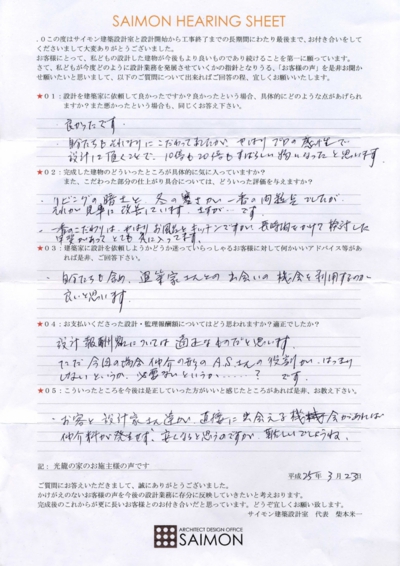 SAIMON HEARING SHEET
.○この度はサイモン建築設計室と設計開始から工事終了までの長期間にわたり最後まで、お付き合いをして
くださいまして大変ありがとうございました。
お客様にとって、私どもの設計した建物が今後もより良いものであり続けることを第一に願っています。
さて、私どもが今後どのように設計業務を発展させていくかの指針となりうる、「お客様の声」を是非お聞か
せ願いたいと思いまして、以下のご質問について出来ればご回答の程、宜しくお願いいたします。
★01:設計を建築家に依頼して良かったですか?良かったという場合、具体的にどのような点があげられ
ますか?また悪かったという場合も、同じくお答え下さい。
良かったです
・自分たちもそれなりにこだわってあたためたが、やはりプロの感性で
設計して頂くことで、10倍も20倍もすばらしい物になったと思います。
★02:完成した建物のどういったところが具体的に気に入っていますか?
また、こだわった部分の仕上がり具合については、どういった評価を与えますか?
・リビングの暗さと、冬の寒さが一番の問題点でしたが、
それが見事に改善しています。ますが…です
・一番のこだわりは、やはりお風呂とキッチンですが、長時間をかけて検討した
甲斐があって とても気に入ってます。
★03:建築家に設計を依頼しようかどうか迷っていらっしゃるお客様に対して何かいいアドバイス等があ
れば是非、ご回答下さい。
・自分たちも含め、建築家さんとの出会いの機会を利用するのが
良いと思います
★04:お支払いくださった設計・監理報酬額についてはどう思われますか?適正でしたか?
設計報酬額については 適正なものだと思います。
ただ 今回の場合 仲介の形の A.S.さんの役割が、はっきり
しないというか、必要ないというか‥‥‥? です。
★05:こういったところを今後は是正していった方がいいと感じたところがあれば是非、お教え下さい。
・お客と設計家さん達が 直接に出会える機会があれば
仲介料が発生せず、安くなると思うのですが 難しいでしょうね。
記:光蔵の家のお施主様の声です
平成25年3月23日
ご質問にお答えいただきまして、誠にありがとうございました。
かけがえのないお客様の声を今後の設計業務に存分に反映していきたいと考えております。
完成後のこれからが更に長いお客様とのお付き合いだと思っています。どうぞ宜しくお願い致します。
サイモン建築設計室 代表 柴本米一
ARCHITECT DESIGN OFFICE
SAIMON